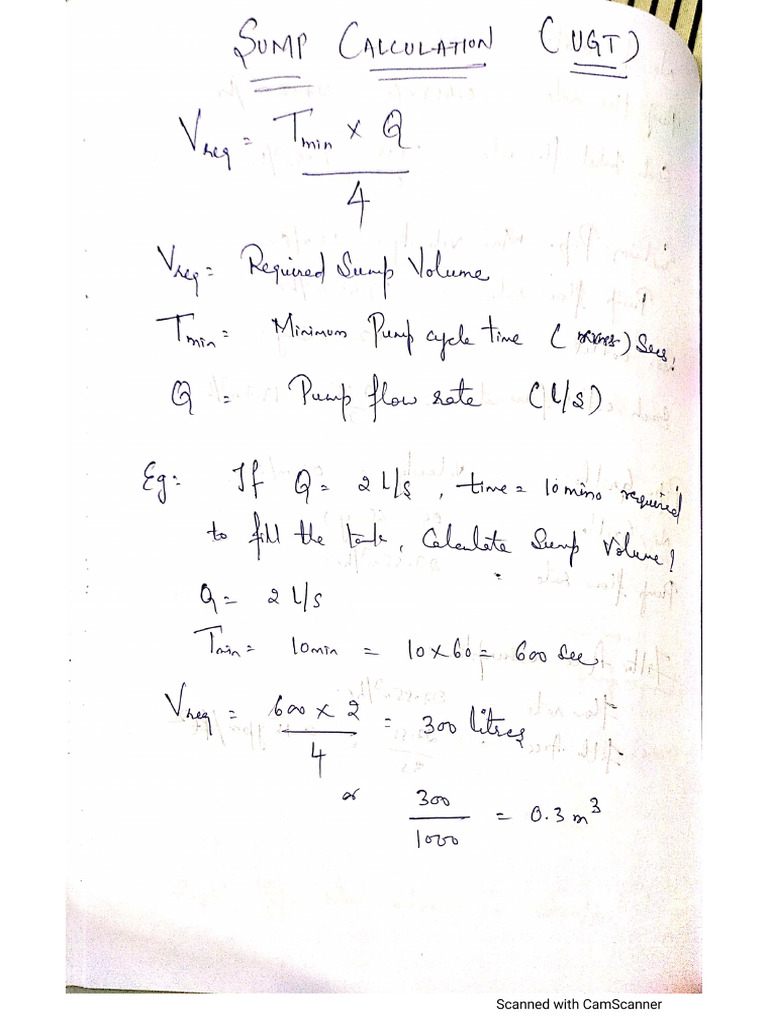 SUMP CALCULATION (UGT)
Vreq = Tmin x Q
4
Vreq = Required Sump Volume
Tmin = Minimum Pump cycle time ( ) Secs.
Q = Pump flow rate (L/s)
Eg: If Q = 2 L/s, time = 10 mins required
to fill the tank, Calculate Sump Volume?
Q = 2 L/s
Tmin = 10min = 10 x 60 = 600 Sec.
Vreq = 600 x 2 = 300 litres
4
or 300 = 0.3 m³
1000
Scanned with CamScanner